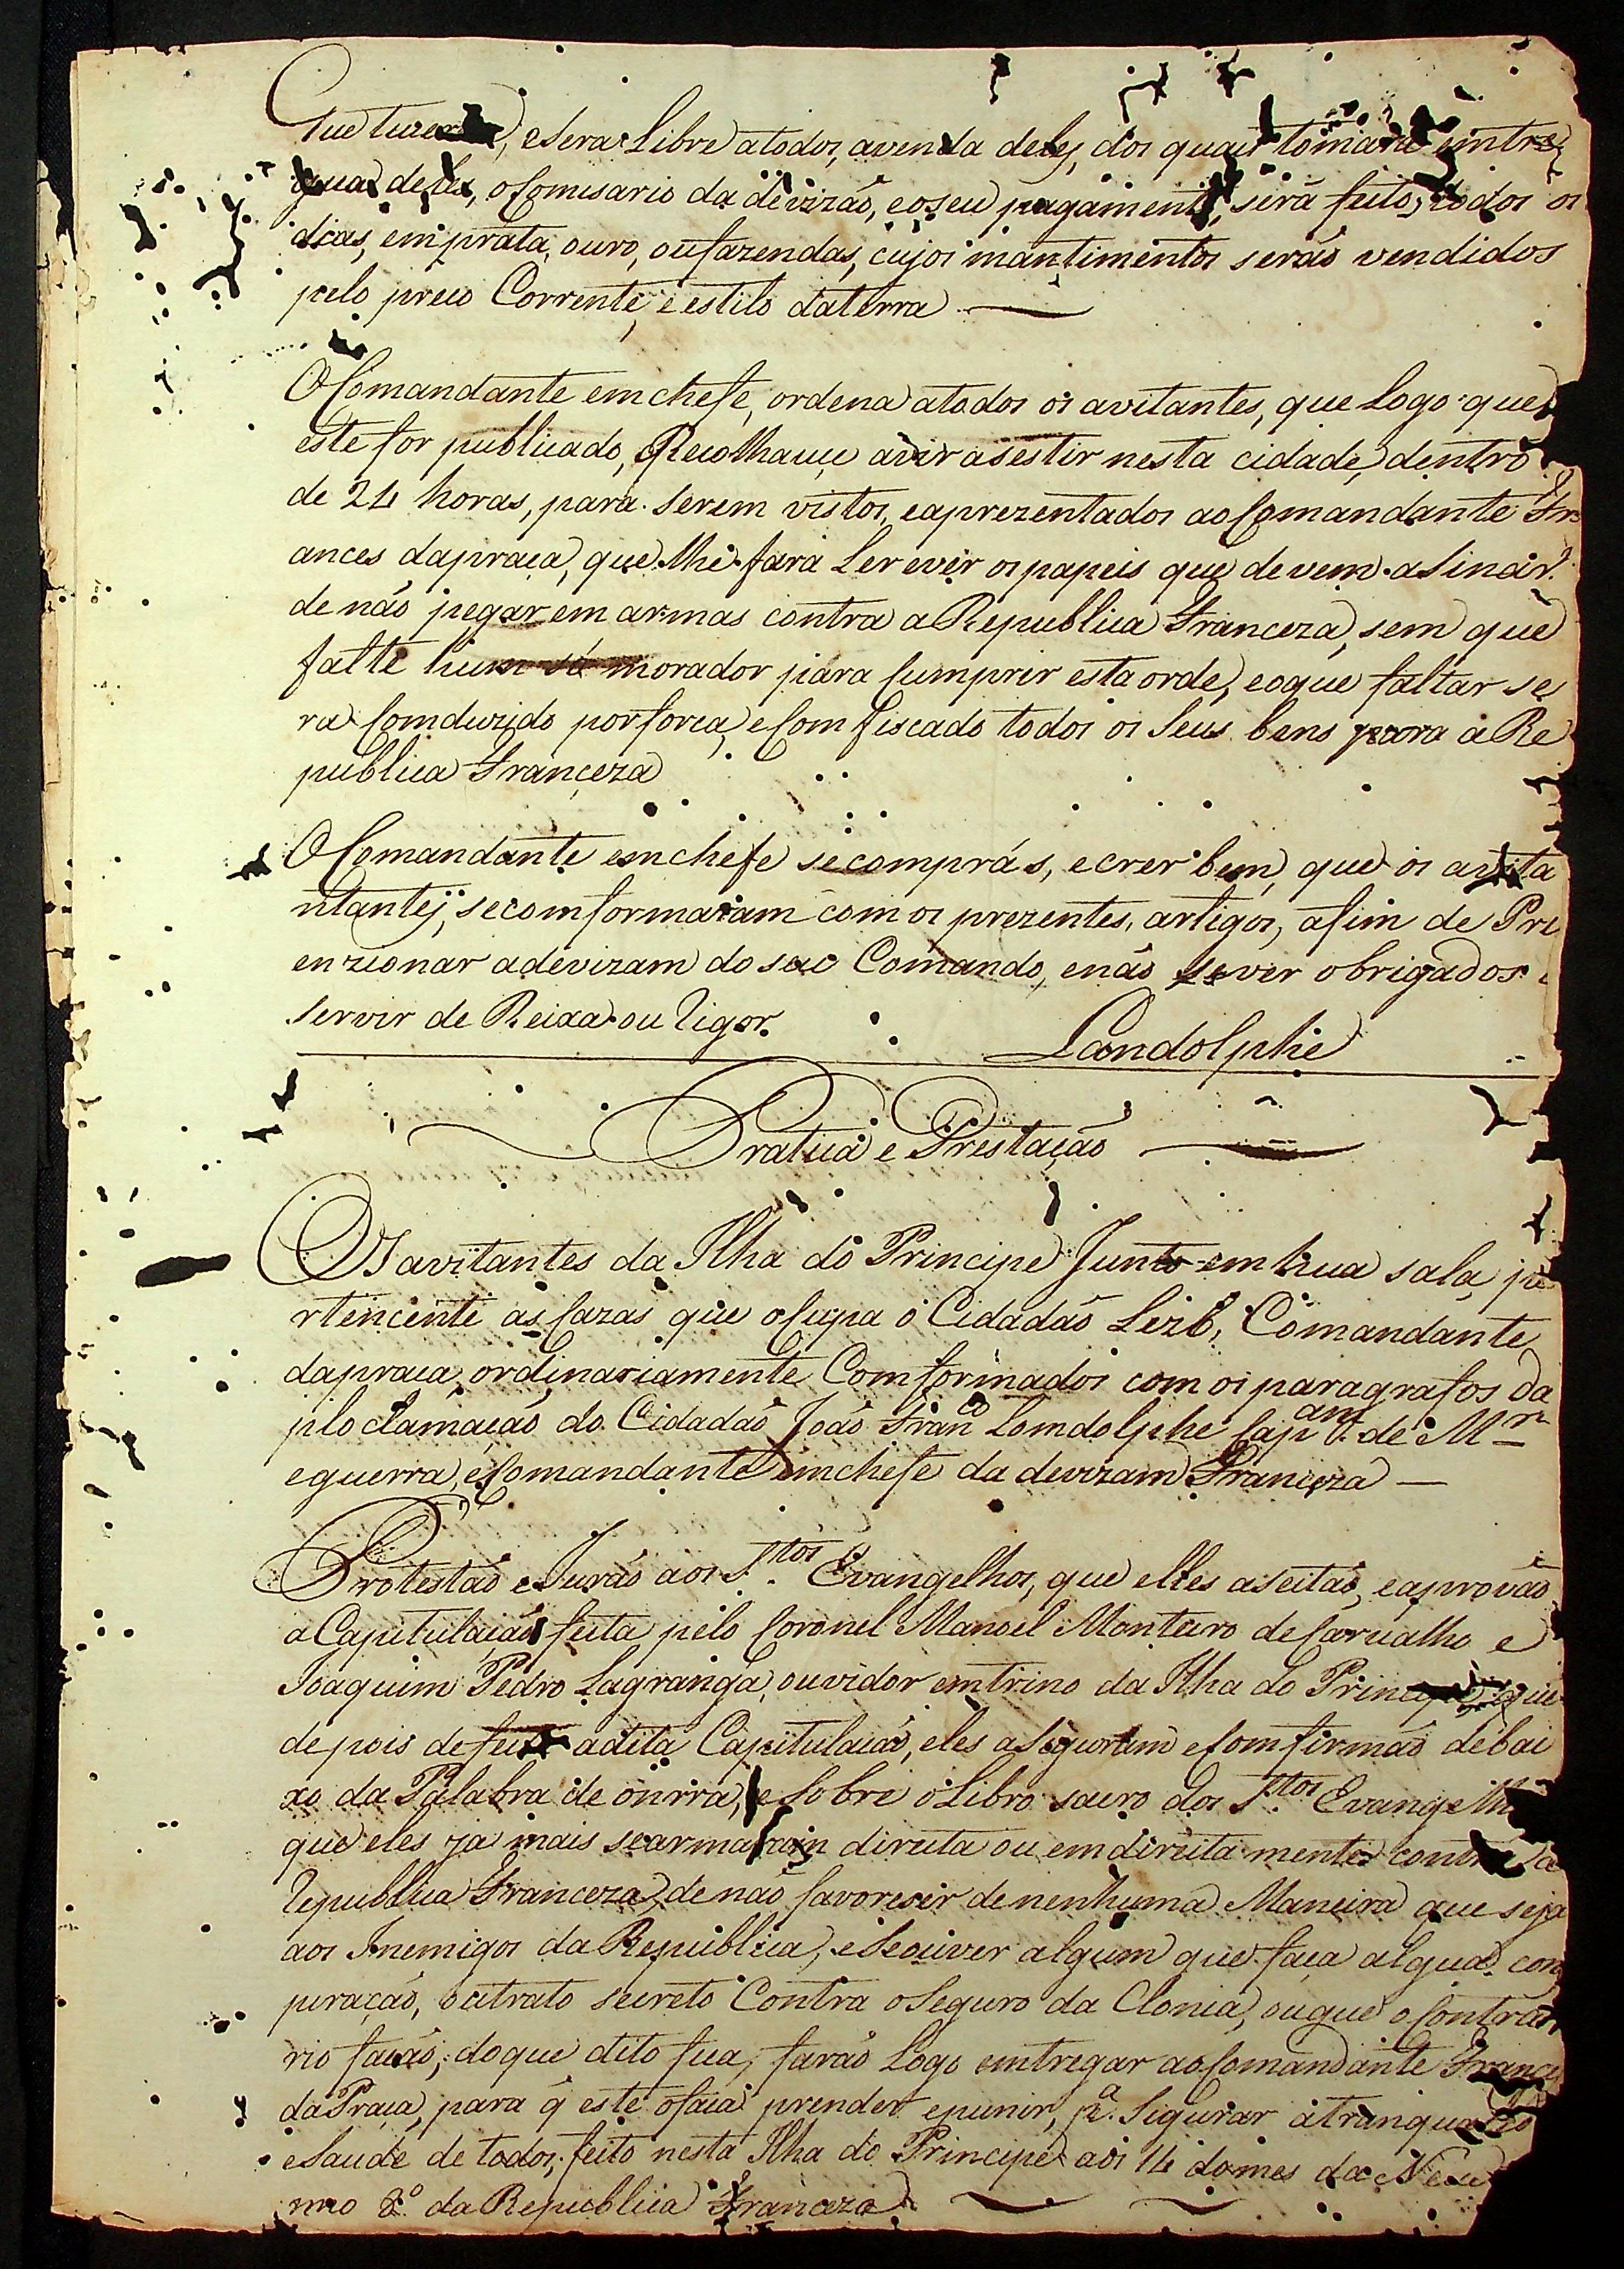 que tuver, e Sera Libre a todos, avenda deles, dos quais tomará emtre
gua deles, o Comisario da devizáo, eoseu pagamento, será feito, todos os
dias, emprata, ouro, oufazendas, cujos mantimentos seráo vendidos
pelo preco Corrente, e estilo daterra
O Comandante emchefe, ordena atodos os avitantes, que Logo que
este for publicado, Recolhauçe avir asestir nesta cidade, dentro
de 24 horas, para serem vistos, eaprezentados ao Comandante Fr
ances dapraca, que lhe fara Ler ever os papeis que devem aSinár
de não pegar em armas contra a Republica Franceza, sem que
falte hum só morador para Cumprir esta orde, eoque faltar se
ra Comduzido porforca, eComfiscado todos os Seus bens para a Re
publica Françeza
O Comandante emchefe secomprás, ecrer bem, que os avita
ntantes, secomformaram com os prezentes, artigos, afim de Pre
enzionar adevizam do seu Comando, enáo sever obrigados a
servir de Reixa ou Rigor.
Landolphe
Pratica e Prestação
OS avitantes da Ilha do Principe Junto em hua sala, pe
rtencente as Cazas que oCupa o Cidadáo Lezb, Comandante
dapraca, ordinariamente Comformados com os paragrafos da
ploclamacáo do Cidadáo João Franco Lomdolphe Capam. de Mr
eguerra, eComandante emchefe da devizam Franceza
Protestáo eJuráo aos S.tos Evangelhos, que elles aseitáo, eaprováo
a Capitulacáo feita pelo Coronel Manoel Monteiro de Carvalho e
Joaquim Pedro Lagranga, ouvidor emtrino da Ilha do Principe, que
depois defeita adita Capitulacáo, eles aSegurám eComfirmáo debai
xo da Palabra de onrra, e Sobre o Libro sacro dos S.tos Evangelh
que eles ja mais searmaram diruta ou emdiruita mente contra a
Republica Franceza, de náo favoreser denenhuma Maneira que seja
aos Inemigos da Republica, eSeouver algum que faca algua cons
piração, outrato secreto Contra oSeguro da Clonia, ouque o Contra
rio facáo, doque dito fica, faráo Logo emtregar ao Comandante France
da Praca, para q̃ este ofaca prender epunir, pa. Sigurar atrinqua
eSaude de todos, feito nesta Ilha do Principe aos 14 domes da
nno 8º da Republica Franceza